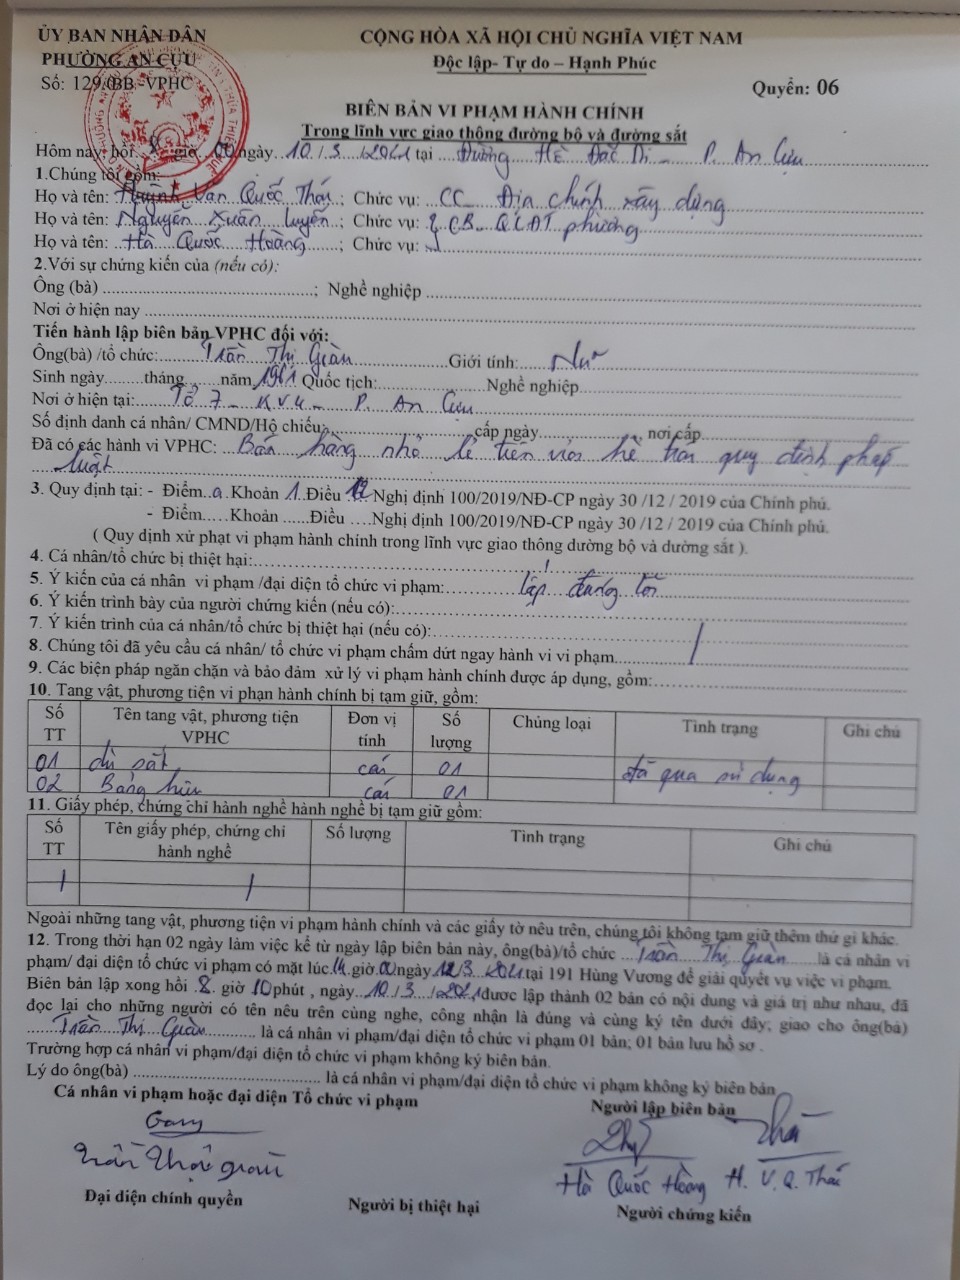 ỦY BAN NHÂN DÂN
PHƯỜNG AN CỰU
Số: 129/BB-VPHC
CỘNG HÒA XÃ HỘI CHỦ NGHĨA VIỆT NAM
Độc lập- Tự do – Hạnh Phúc
Quyển: 06
BIÊN BẢN VI PHẠM HÀNH CHÍNH
Trong lĩnh vực giao thông đường bộ và đường sắt
Hôm nay, hồi 8 giờ 00 ngày 10/3/2021 tại Đường Hồ Đắc Di - P. An Cựu
1.Chúng tôi gồm:
Họ và tên: Huỳnh Văn Quốc Thái; Chức vụ: CC Địa chính xây dựng
Họ và tên: Nguyễn Xuân Luyến; Chức vụ: CB QLĐT phường
Họ và tên: Hà Quốc Hoàng; Chức vụ:
2.Với sự chứng kiến của (nếu có):
Ông (bà) ; Nghề nghiệp
Nơi ở hiện nay
Tiến hành lập biên bản VPHC đối với:
Ông(bà) /tổ chức: Trần Thị Giàn Giới tính: Nữ
Sinh ngày tháng năm 1961 Quốc tịch: Nghề nghiệp
Nơi ở hiện tại: Tổ 7 - KV4 - P. An Cựu
Số định danh cá nhân/ CMND/Hộ chiếu cấp ngày nơi cấp
Đã có các hành vi VPHC: Bán hàng nhỏ lẻ trên vỉa hè trái quy định pháp
luật
3. Quy định tại: - Điểm a Khoản 1 Điều 12 Nghị định 100/2019/NĐ-CP ngày 30 /12 / 2019 của Chính phủ.
- Điểm.....Khoản ......Điều ....Nghị định 100/2019/NĐ-CP ngày 30 /12 / 2019 của Chính phủ.
( Quy định xử phạt vi phạm hành chính trong lĩnh vực giao thông đường bộ và đường sắt ).
4. Cá nhân/tổ chức bị thiệt hại: /
5. Ý kiến của cá nhân vi phạm /đại diện tổ chức vi phạm: lập đúng lỗi
6. Ý kiến trình bày của người chứng kiến (nếu có):
7. Ý kiến trình của cá nhân/tổ chức bị thiệt hại (nếu có): /
8. Chúng tôi đã yêu cầu cá nhân/ tổ chức vi phạm chấm dứt ngay hành vi vi phạm.
9. Các biện pháp ngăn chặn và bảo đảm xử lý vi phạm hành chính được áp dụng, gồm:
10. Tang vật, phương tiện vi phạn hành chính bị tạm giữ, gồm:
Số TT Tên tang vật, phương tiện VPHC Đơn vị tính Số lượng Chủng loại Tình trạng Ghi chú
01 dù sắt cái 01 đã qua sử dụng
02 Bảng hiệu cái 01
11. Giấy phép, chứng chỉ hành nghề hành nghề bị tạm giữ gồm:
Số TT Tên giấy phép, chứng chỉ hành nghề Số lượng Tình trạng Ghi chú
/ /
Ngoài những tang vật, phương tiện vi phạm hành chính và các giấy tờ nêu trên, chúng tôi không tạm giữ thêm thứ gì khác.
12. Trong thời hạn 02 ngày làm việc kể từ ngày lập biên bản này, ông(bà)/tổ chức Trần Thị Giàn là cá nhân vi
phạm/ đại diện tổ chức vi phạm có mặt lúc 14 giờ 00 ngày 12/3/2021 tại 191 Hùng Vương để giải quyết vụ việc vi phạm.
Biên bản lập xong hồi 8 giờ 10 phút , ngày 10/3/2021 được lập thành 02 bản có nội dung và giá trị như nhau, đã
đọc lại cho những người có tên nêu trên cùng nghe, công nhận là đúng và cùng ký tên dưới đây; giao cho ông(bà)
Trần Thị Giàn là cá nhân vi phạm/đại diện tổ chức vi phạm 01 bản; 01 bản lưu hồ sơ .
Trường hợp cá nhân vi phạm/đại diện tổ chức vi phạm không ký biên bản.
Lý do ông(bà) là cá nhân vi phạm/đại diện tổ chức vi phạm không ký biên bản
Cá nhân vi phạm hoặc đại diện Tổ chức vi phạm
Người lập biên bản
Hà Quốc Hoàng H. V. Q. Thái
Đại diện chính quyền
Người bị thiệt hại
Người chứng kiến